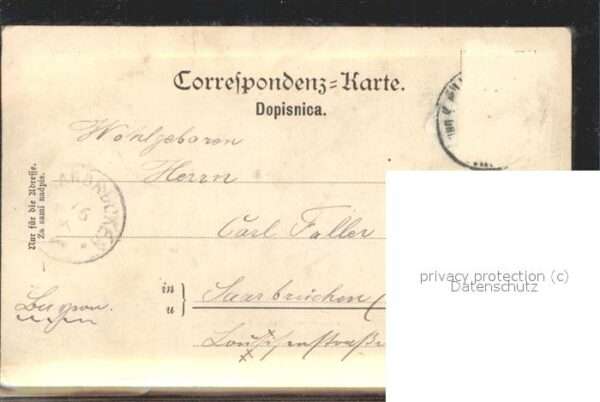 Correspondenz-Karte.
Dopisnica.
Wohlgeboren
Herrn
Carl Faller
in
u
Saarbrücken (
Nur für die Adresse.
Za sami nadpis.
SAARBRÜCKEN
16
privacy protection (c)
Datenschutz